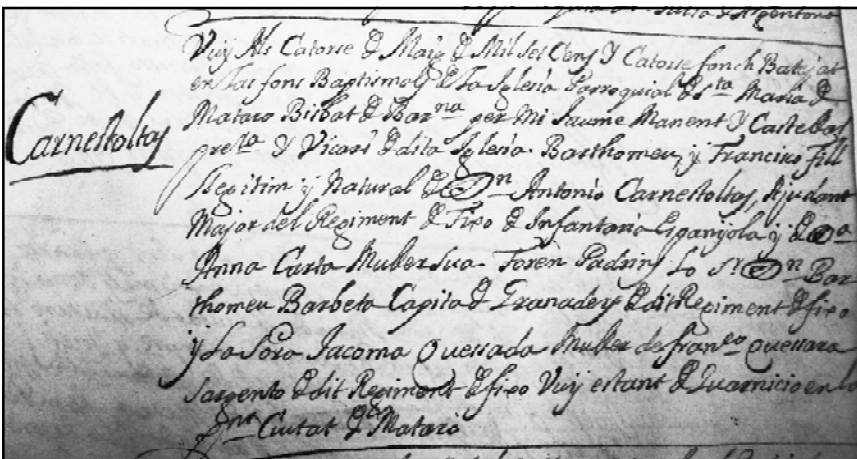 Carnestoltas
Vuy Als Catorse d Maig d Mil set Cens y Catorse fonch Batejat
en las fons Baptismals d la Iglesia Parroquial d Sta Maria d
Mataro Bisbat d Barna per Mi Jaume Manent y Castellas
pre y Vicari d dita Iglesia Barthomeu, y Francisco fill
llegitim y Natural d Dn Antonio Carnestoltas, Ajudant
Major del Regiment d Fixo d Infantaria Espanyola y d Da
Anna Carta Muller sua Foren Padrins lo Sr Dn Bar
thomeu Barbeta Capita d Granaders d dit Regiment d fixo
y la Sora Jacoma Quessada Muller de franco
Sargento d dit Regiment d fixo Vuy estant d Guarnicio en la
pnt Ciutat d Mataro